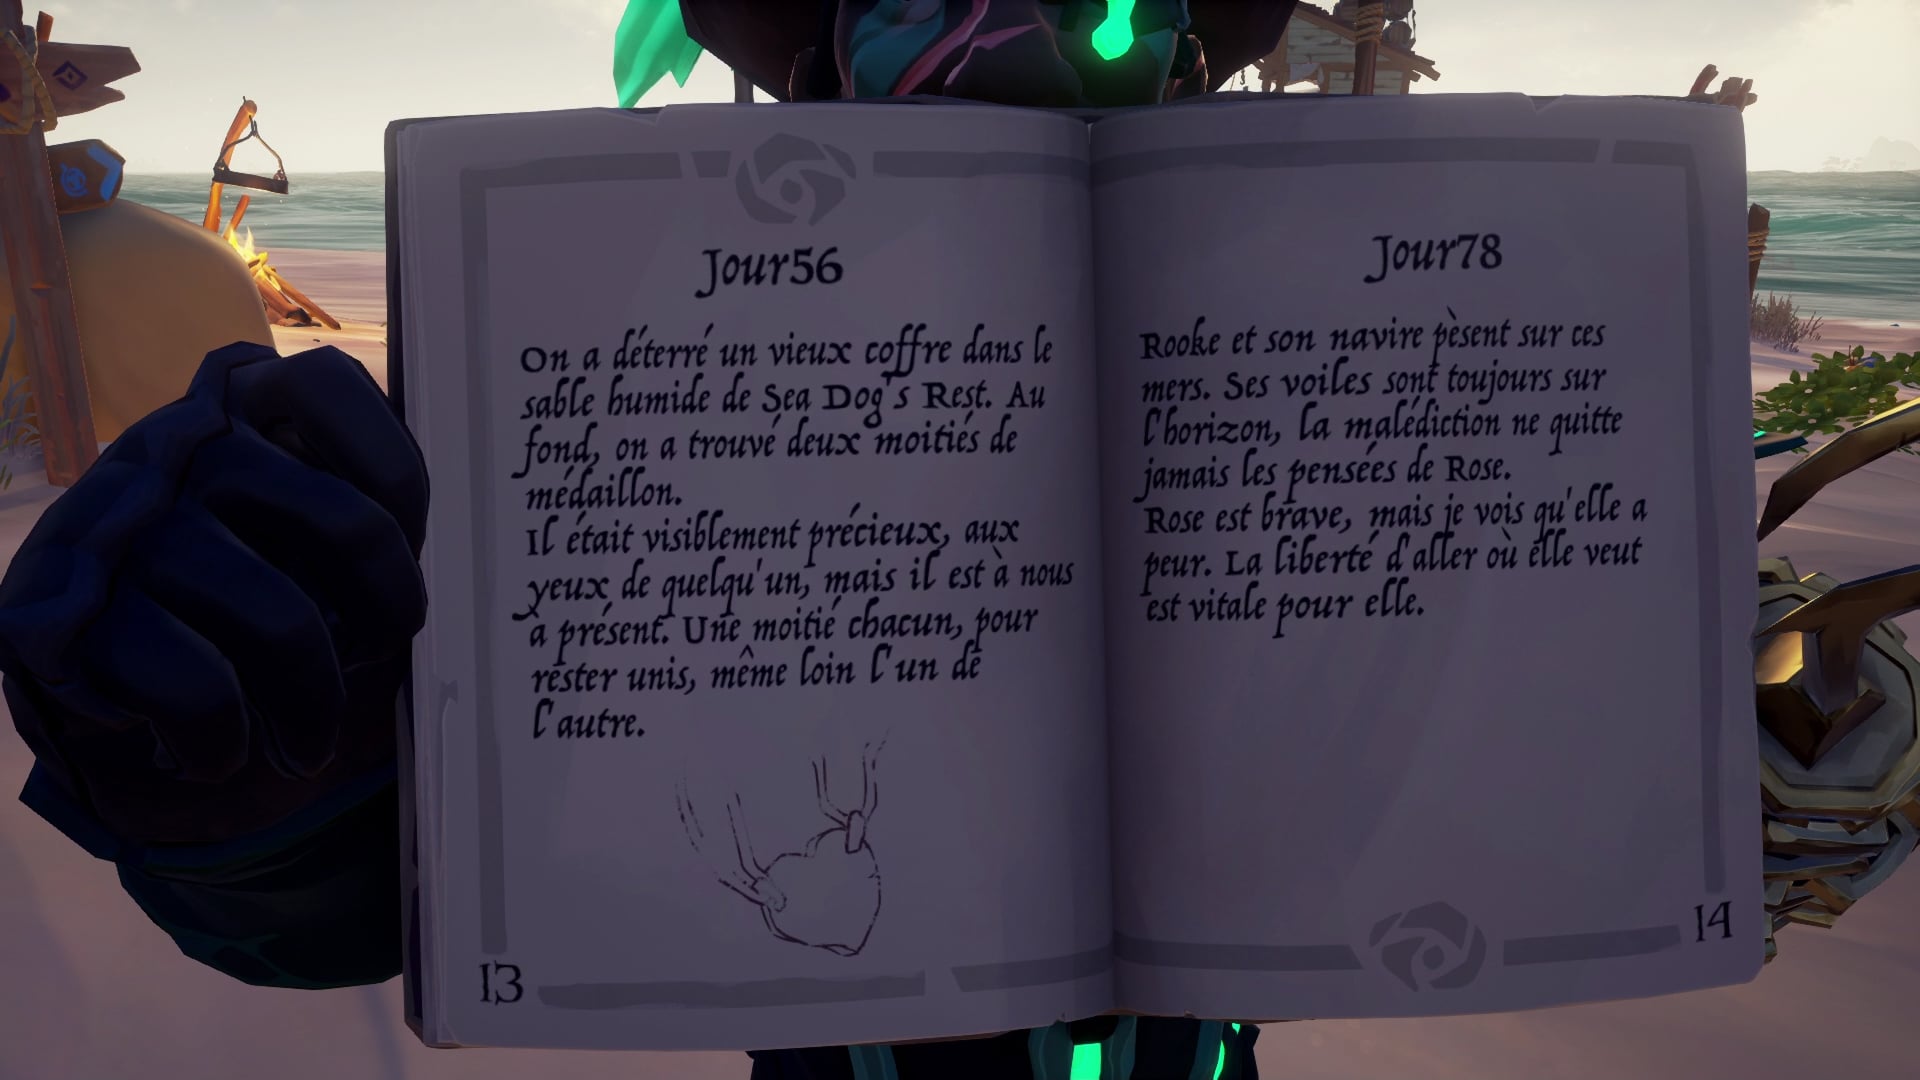 Jour56
On a déterré un vieux coffre dans le
sable humide de Sea Dog's Rest. Au
fond, on a trouvé deux moitiés de
médaillon.
Il était visiblement précieux, aux
yeux de quelqu'un, mais il est à nous
a présent. Une moitié chacun, pour
rester unis, même loin l'un de
l'autre.
13
Jour78
Rooke et son navire pèsent sur ces
mers. Ses voiles sont toujours sur
l'horizon, la malédiction ne quitte
jamais les pensées de Rose.
Rose est brave, mais je vois qu'elle a
peur. La liberté d'aller où elle veut
est vitale pour elle.
14